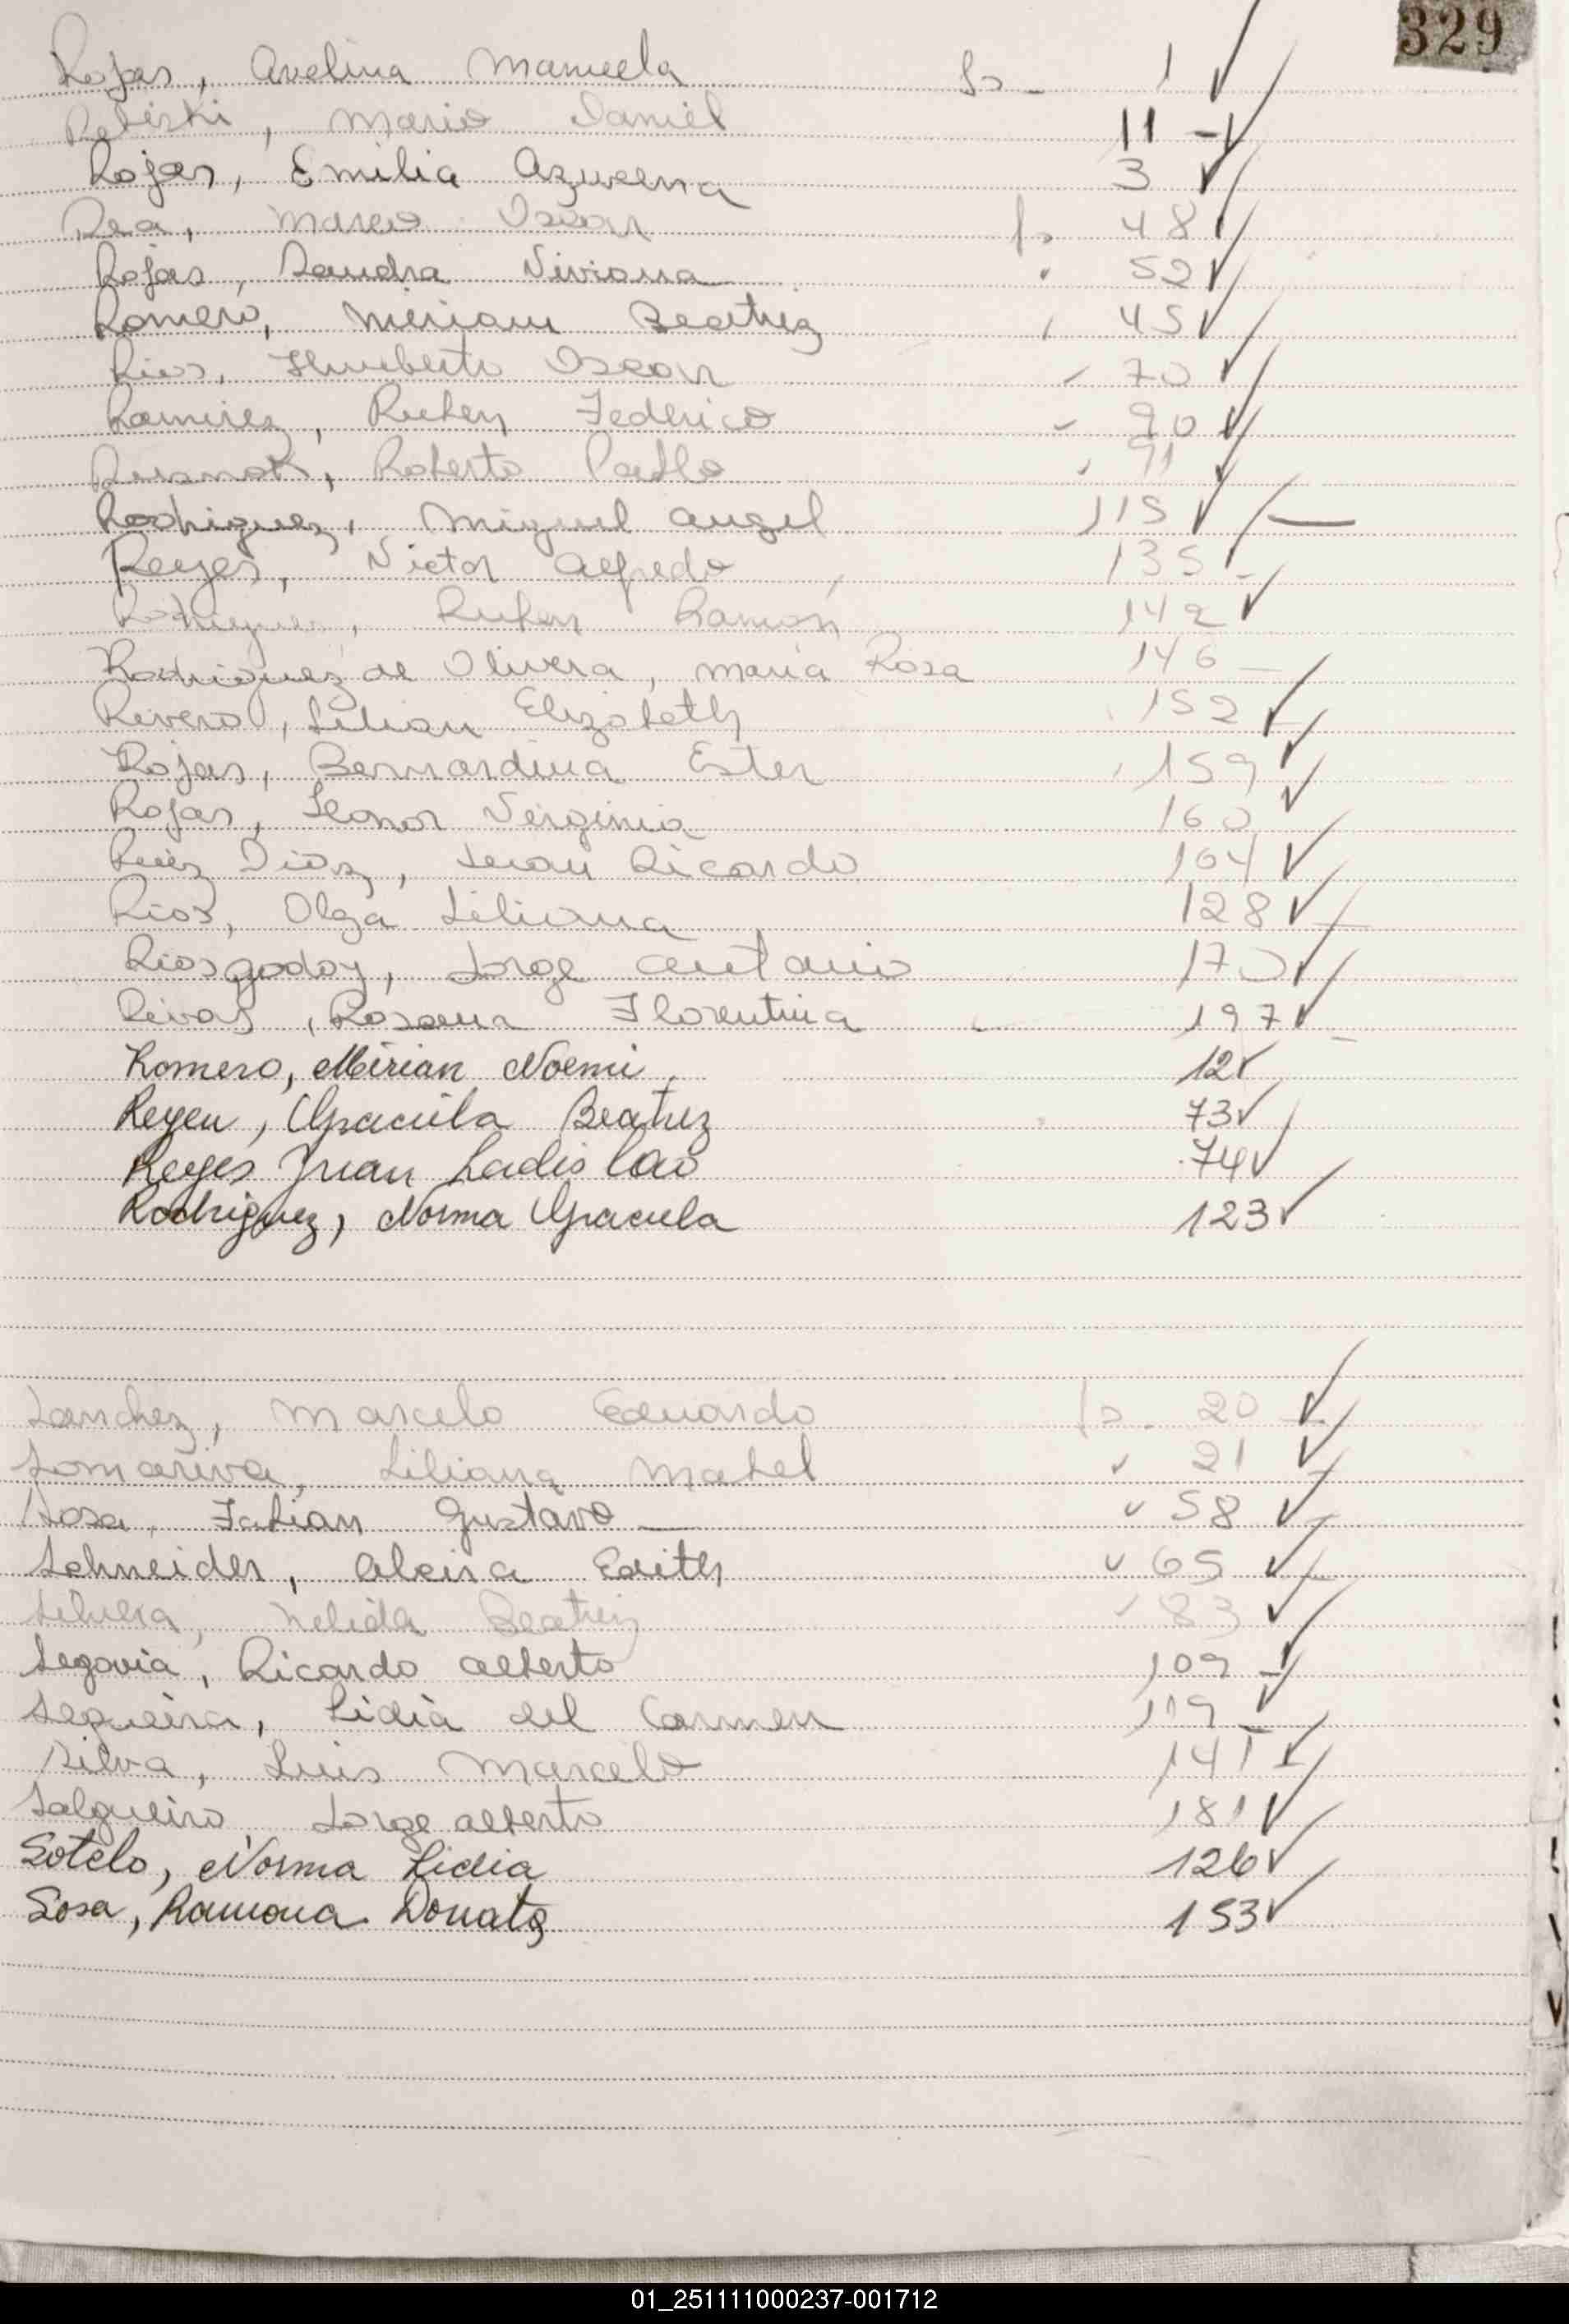 329
Rojas, Avelina Manuela fs - 1
Rebeski, Mario Daniel 11 -
Rojas, Emilia Azucena 3
Rea, Marcos Oscar fs 48
Rojas, Sandra Viviana " 52
Romero, Miriam Beatriz " 45
Rios, Humberto Oscar " 70
Ramirez, Ruben Federico " 90
Roberto Pablo " 91
Rodriguez, Miguel Angel 115
Reyes, Victor Alfredo 135 -
Rodriguez, Ruben Ramón 142
Rodriguez de Olivera, María Rosa 146 -
Rivero, Lilian Elizabeth 152
Rojas, Bernardina Ester 159
Rojas, Leonor Virginia 160
Ruiz Diaz, Juan Ricardo 164
Rios, Olga Liliana 128
Rios Godoy, Jorge Antonio 170
Rivas, Rosana Florentina 197
Romero, Mirian Noemi 12
Reyes, Graciela Beatriz 73
Reyes Juan Ladislao 74
Rodriguez, Norma Graciela 123
Sanchez, Marcelo Eduardo fs. 20
Somariva, Liliana Mabel " 21
Sosa, Fabian Gustavo " 58
Schneider, Alcira Edith " 65
Silvera, Nelida Beatriz " 83
Segovia, Ricardo Alberto 109
Sequeira, Lidia del Carmen 119
Silva, Luis Marcelo 141
Salgueiro Jorge Alberto 181
Sotelo, Norma Lidia 126
Sosa, Ramona Donata 153
01_251111000237-001712